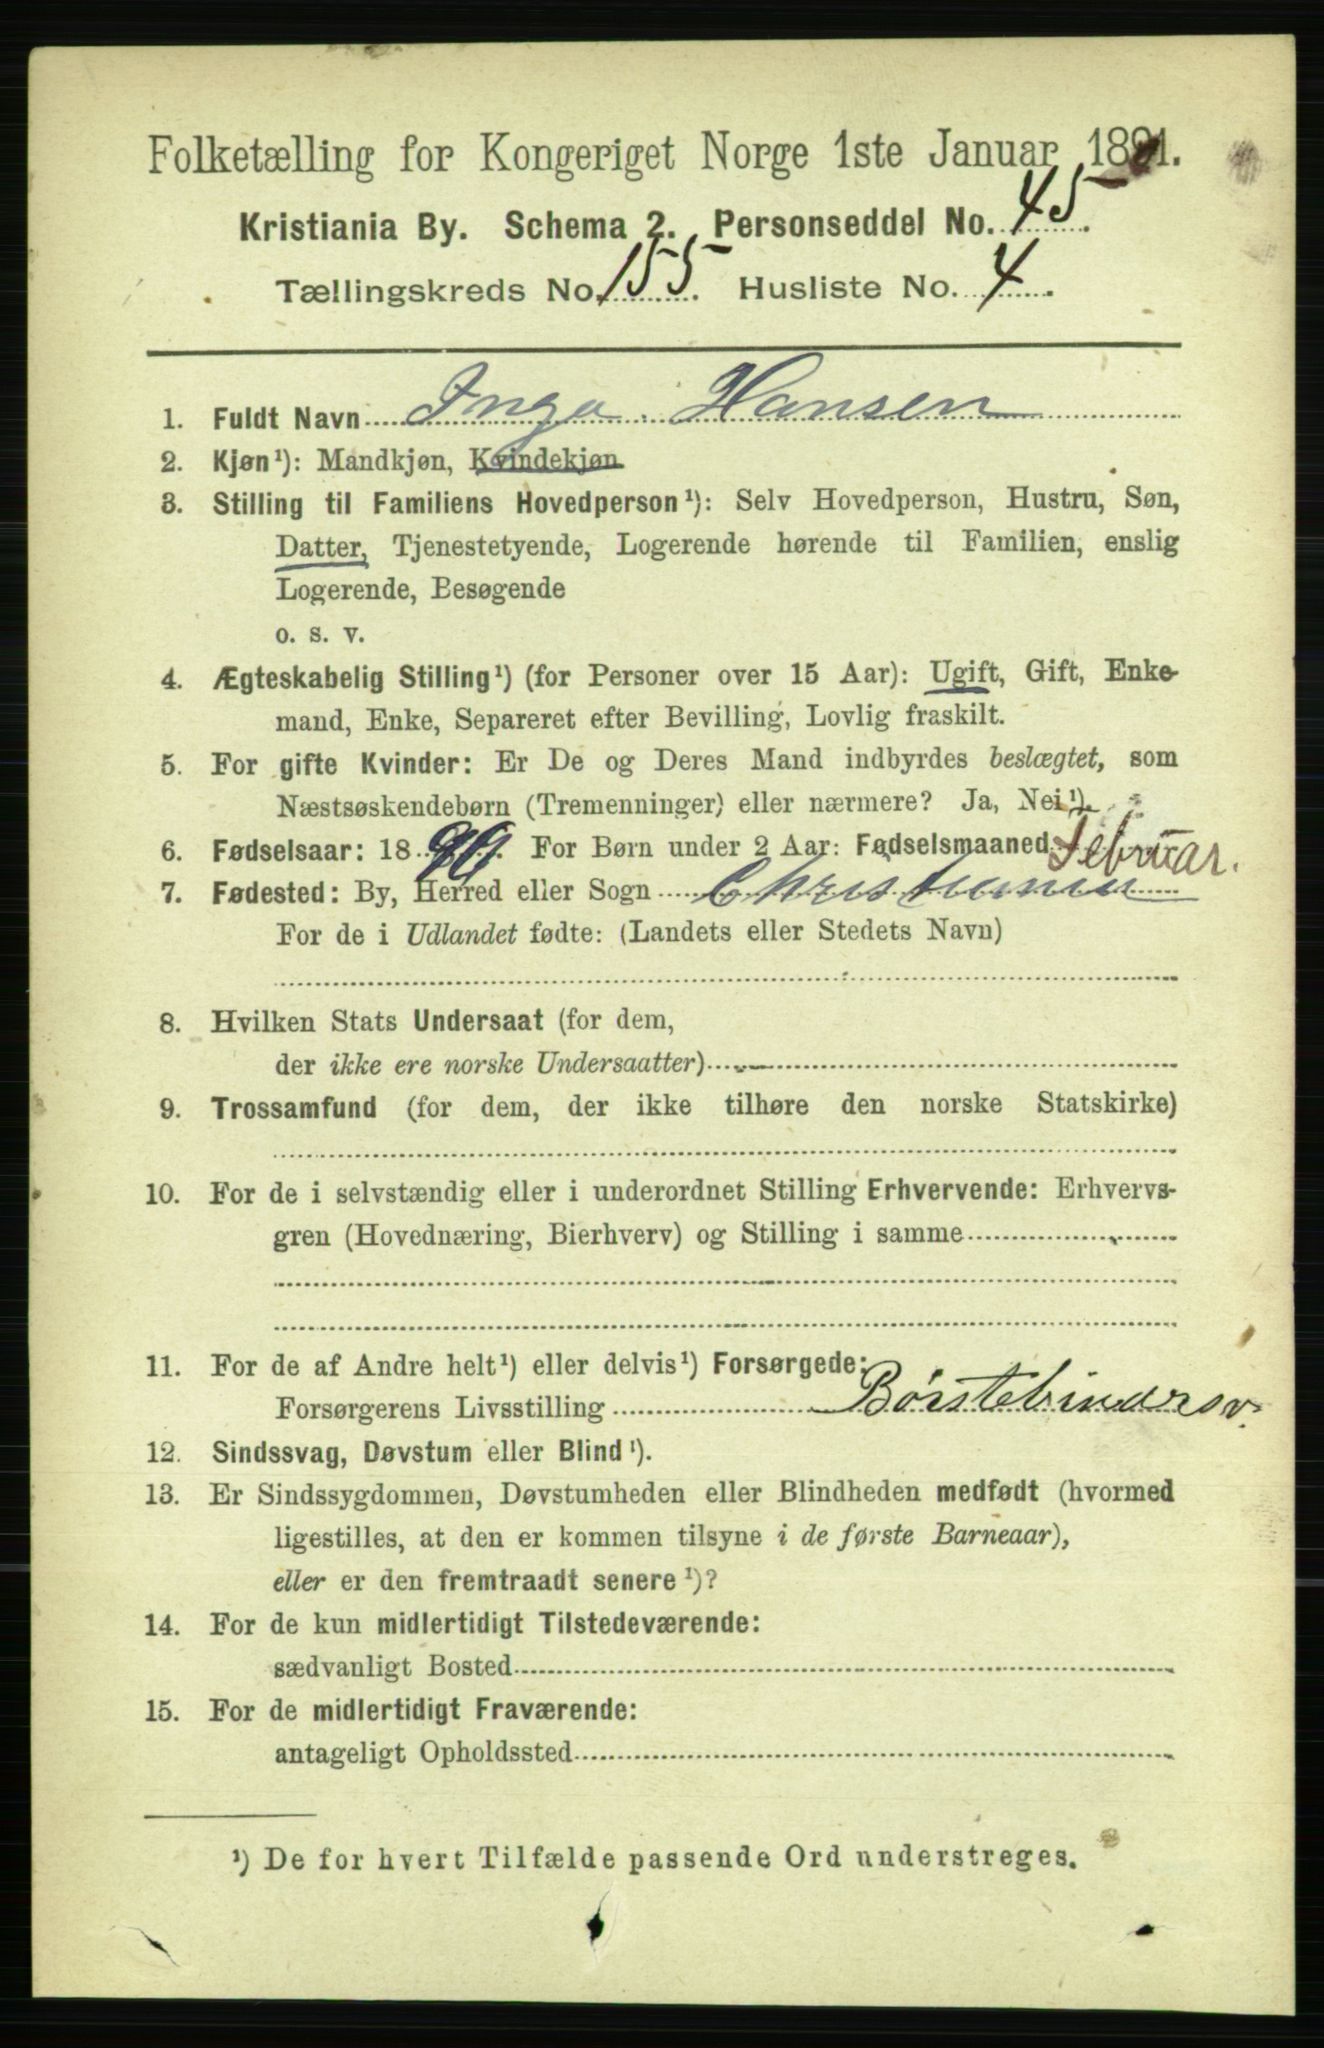 Folketælling for Kongeriget Norge 1ste Januar 1891.
Kristiania By. Schema 2. Personseddel No. 45.
Tællingskreds No. 155. Husliste No. 4.
1. Fuldt Navn Inga Hansen
2. Kjøn¹): Mandkjøn, Kvindekjøn
3. Stilling til Familiens Hovedperson¹): Selv Hovedperson, Hustru, Søn,
Datter, Tjenestetyende, Logerende hørende til Familien, enslig
Logerende, Besøgende
o. s. v.
4. Ægteskabelig Stilling¹) (for Personer over 15 Aar): Ugift, Gift, Enke-
mand, Enke, Separeret efter Bevilling, Lovlig fraskilt.
5. For gifte Kvinder: Er De og Deres Mand indbyrdes beslægtet, som
Næstsøskendebørn (Tremenninger) eller nærmere? Ja, Nei¹).
6. Fødselsaar: 18 For Børn under 2 Aar: Fødselsmaaned Februar.
7. Fødested: By, Herred eller Sogn Christiania
For de i Udlandet fødte: (Landets eller Stedets Navn)
8. Hvilken Stats Undersaat (for dem,
der ikke ere norske Undersaatter)
9. Trossamfund (for dem, der ikke tilhøre den norske Statskirke)
10. For de i selvstændig eller i underordnet Stilling Erhvervende: Erhvervs-
gren (Hovednæring, Bierhverv) og Stilling i samme
11. For de af Andre helt¹) eller delvis¹) Forsørgede:
Forsørgerens Livsstilling Børstebindersv.
12. Sindssvag, Døvstum eller Blind¹).
13. Er Sindssygdommen, Døvstumheden eller Blindheden medfødt (hvormed
ligestilles, at den er kommen tilsyne i de første Barneaar),
eller er den fremtraadt senere¹)?
14. For de kun midlertidigt Tilstedeværende:
sædvanligt Bosted
15. For de midlertidigt Fraværende:
antageligt Opholdssted
¹) De for hvert Tilfælde passende Ord understreges.